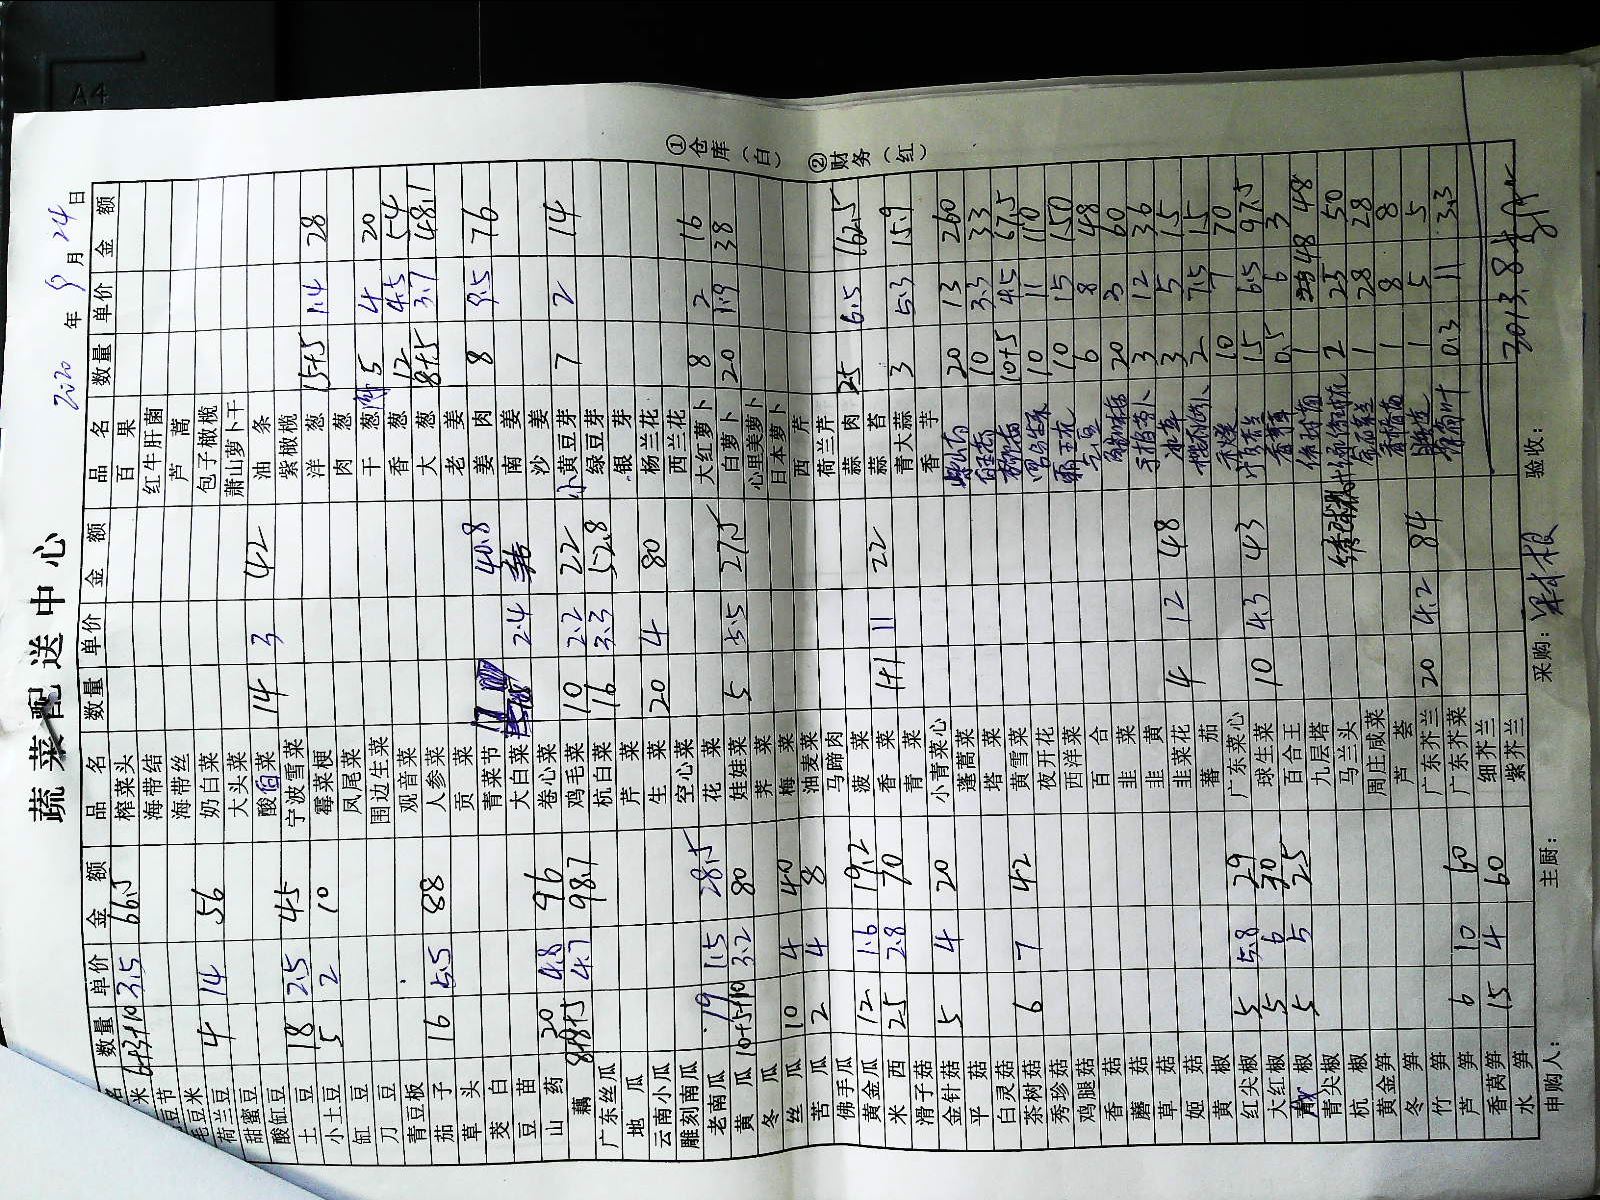 蔬菜配送中心
2020 年 9 月 24 日
品名 数量 单价 金额
米 6+3+10 3.5 66.5
豆节
毛豆米
荷兰豆 4 14 56
甜蜜豆
酸缸豆
土豆 18 2.5 45
小土豆 5 2 10
缸豆
刀豆
青豆板
茄子 16 5.5 88
草头
茭白
豆苗
山药 20 4.8 96
藕 8+8+5 4.7 98.7
广东丝瓜
地瓜
云南小瓜
雕刻南瓜
老南瓜 19 1.5 28.5
黄瓜 10+5+10 3.2 80
冬瓜
丝瓜 10 4 40
苦瓜 2 4 8
佛手瓜
黄金瓜 12 1.6 19.2
米西 25 2.8 70
滑子菇
金针菇 5 4 20
平菇
白灵菇
茶树菇 6 7 42
秀珍菇
鸡腿菇
香菇
蘑菇
草菇
姬菇
黄椒
红尖椒 5 5.8 29
大红椒 5 6 30
椒 5 5 25
青尖椒
杭椒
黄金笋
冬笋
竹笋
芦笋 6 10 60
香莴笋 15 4 60
水笋
品名 数量 单价 金额
榨菜头
海带结
海带丝
奶白菜
大头菜
酸白菜 14 3 42
宁波雪菜
霉菜梗
凤尾菜
围边生菜
观音菜
人参菜
贡菜
青菜节
大白菜 17 2.4 40.8
卷心菜
鸡毛菜 10 2.2 22
杭白菜 16 3.3 52.8
芹菜
生菜 20 4 80
空心菜
花菜
娃娃菜 5 5.5 27.5
荠菜
梅菜
油麦菜
马蹄肉
菠菜
香菜 1+1 11 22
青菜
小青菜心
蓬蒿菜
塔菜
黄雪菜
夜开花
西洋菜
百合
韭菜
韭黄
韭菜花 4 12 48
蕃茄
广东菜心
球生菜 10 4.3 43
百合王
九层塔
马兰头
周庄咸菜
芦荟
广东芥兰 20 4.2 84
广东芥菜
细芥兰
紫芥兰
品名 数量 单价 金额
百果
红牛肝菌
芦蒿
包子橄榄
萧山萝卜干
油条
紫橄榄
洋葱 15+5 1.4 28
肉葱
干葱 5 4 20
香葱 12 4.5 54
大葱 8+5 3.7 48.1
老姜
姜肉 8 9.5 76
南姜
沙姜
小黄豆芽 7 2 14
绿豆芽
银芽
杨兰花
西兰花
大红萝卜 8 2 16
白萝卜 20 1.9 38
心里美萝卜
日本萝卜
西芹
荷兰芹
蒜肉 25 6.5 162.5
蒜苔
青大蒜 3 5.3 15.9
香芋
20 13 260
10 3.3 33
10+5 4.5 67.5
10 11 110
10 15 150
6 8 48
20 3 60
手指萝卜 3 12 36
3 5 15
2 7.5 15
10 7 70
15 6.5 97.5
0.5 6 3
1 48 48
2 25 50
1 28 28
1 8 8
1 5 5
0.3 11 3.3
3013.8
①仓库(白) ②财务(红)
申购人: 主厨: 采购: 验收:
A4